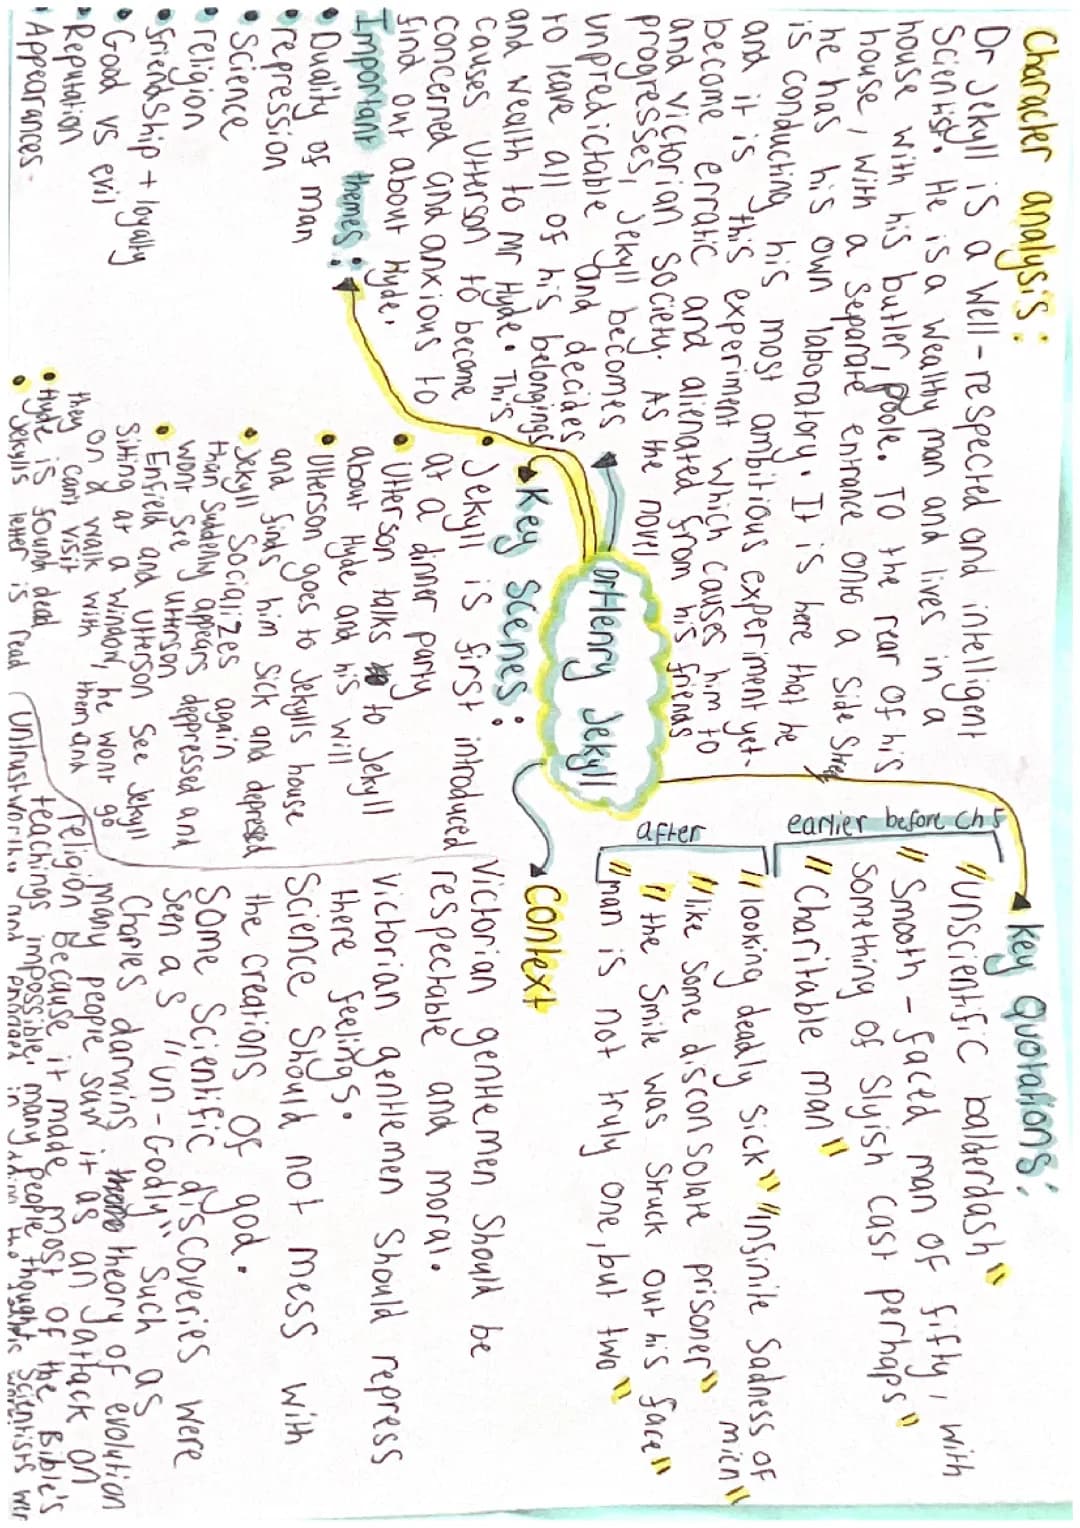 Character analysis:
Dr Jekyll is a well-respected and intelligent
Scientist. He is a wealthy man and lives in a
house with his butler, Poole. To the rear of his
house, with a separate entrance onto a side street
he has his own laboratory. It is here that he
is conducting his most ambitious experiment yet-
and it is this experiment which causes him to
become erratic and alienated from his friends
and victorian society. As the novl
progresses, Jekyll becomes
unpredictable and decides
to leave all of his belongings
and wealth to Mr Hyde. This
causes Utterson to become
concerned and anxious to
find out about Hyde.
Important themes:
• Duality of man
• repression
• Science
• religion
• friendship + loyalty
• Good vs evil
• Reputation
• Appearances.
Dr Henry Jekyll
Key Scenes:
• Jekyll is first introduced
at a dinner party
• Utterson talks to Jekyll
about Hyde and his will
• Utterson goes to Jekylls house
and finds him sick and depressed
• Jekyll Socializes again
than suddenly appears depressed and
wont see utterson
• Enfield and Utterson see Jekyll
sitting at a window, he wont go
on a walk with them and
they cant visit
• Hyde is found dead
• Jekylls letter is read
Key Quotations:
earlier before ch 5
"Unscientific balderdash"
"Smooth-faced man of fifty, with
something of slyish cast perhaps"
"Charitable man"
after
"looking deadly sick" "infinite sadness of
mien"
"like some disconsolate prisoner"
"the smile was struck out his face"
"man is not truly one, but two"
Context
Victorian gentlemen should be
respectable and moral.
Victorian gentlemen should repress
there feelings.
Science should not mess with
the creations of god.
Some scientific discoveries were
seen as "un-Godly" such as
Charles darwins theory of evolution
many people saw it as an attack on
religion Because it made most of the Bible's
teachings impossible, many people thought scientists wer
and